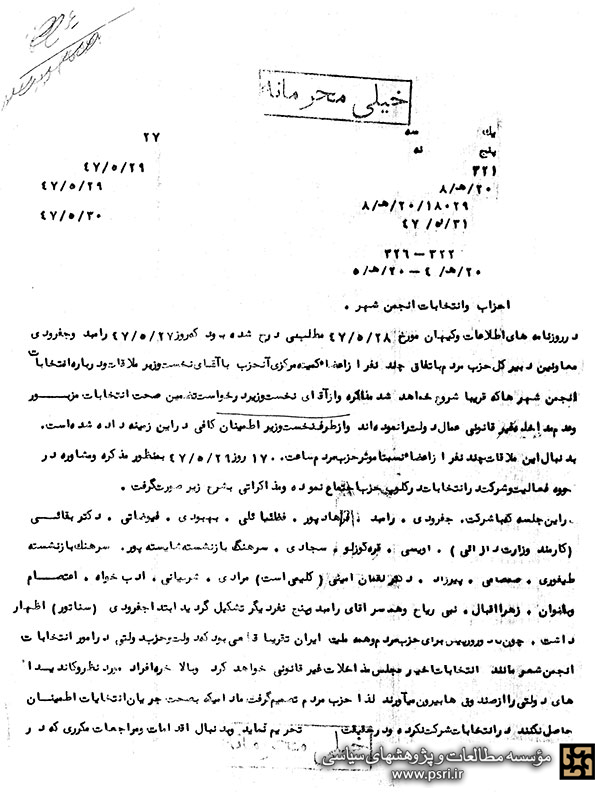 خیلی محرمانه
یک سه ۲۷
پنج نه
۳۲۱ ۴۷/۵/۲۹
۲۰/هـ/۸ ۴۷/۵/۲۹
۸/هـ/۲۰/۱۸۰۲۹
۴۷/۵/۳۱ ۴۷/۵/۳۰
۳۲۲ – ۳۲۶
۲۰/هـ/۴ – ۲۰/هـ/۵
احزاب وانتخابات انجمن شهر .
درروزنامه های اطلاعات وکیهان مورخ ۴۷/۵/۲۸ مطالبی درج شده بود که روز ۴۷/۵/۲۷ رامبد وجفرودی
معاونین دبیرکل حزب مردم باتفاق چند نفر ازاعضاء کمیته مرکزی آنحزب باآقای نخست وزیر ملاقات ودرباره انتخابات
انجمن شهر هاکه قریبا شروع خواهد شد مذاکره وازآقای نخست وزیر درخواست تضمین صحت انتخابات مزبور
وعدم مداخله غیر قانونی عمال دولت رانموده اند وازطرف نخست وزیر اطمینان کافی دراین زمینه داده شده است.
بدنبال این ملاقات چند نفر ازاعضاء نسبتا موثر حزب مردم ساعت ۱۷۰۰ روز ۴۷/۵/۲۹ بمنظور مذکره ومشاوره در
نحوه فعالیت وشرکت درانتخابات درکلوپ حزب اجتماع نموده ومذاکراتی بشرح زیر صورت گرفت .
دراین جلسه که باشرکت. جفرودی . رامبد . فرهادپور. فضائلی . بهبودی . فیوضاتی . دکتر بقائی
(کارمند وزارت دارائی) . اویسی . قره گوزلو . سجادی . سرهنگ بازنشسته شایسته پور. سرهنگ بازنشسته
طیفوری . صمصامی . پیرزاد . دکتر لقمان امینی (کلیمی است) مرادی . شرمیانی . ادب خواه . اعتصام
وبانوان . زهرا اقبال . نمی ریاح وهمسر آقای رامبد وپنج نفر دیگر تشکیل گردید ابتدا جفرودی (سناتور) اظهار
داشت . چون در وررسیس برای حزب مردم وهمه ملت ایران تقریبا قطعی بود که دولت وحزب دولتی درامور انتخابات
انجمن شهر مانند انتخابات اخیر مجلس مداخلات غیر قانونی خواهد کرد وبالاخره افراد مورد نظر وکاندیدا
های دولتی راازصندوق هابیرون میآورند لذا حزب مردم تصمیم گرفت مادامیکه بصحت جریان انتخابات اطمینان
حاصل نکند درانتخابات شرکت نکرده ودرحقیقت تحریم نماید وبدنبال اقدامات ومراجعات مکرری که در
مؤسسه مطالعات و پژوهشهای سیاسی
www.psri.ir